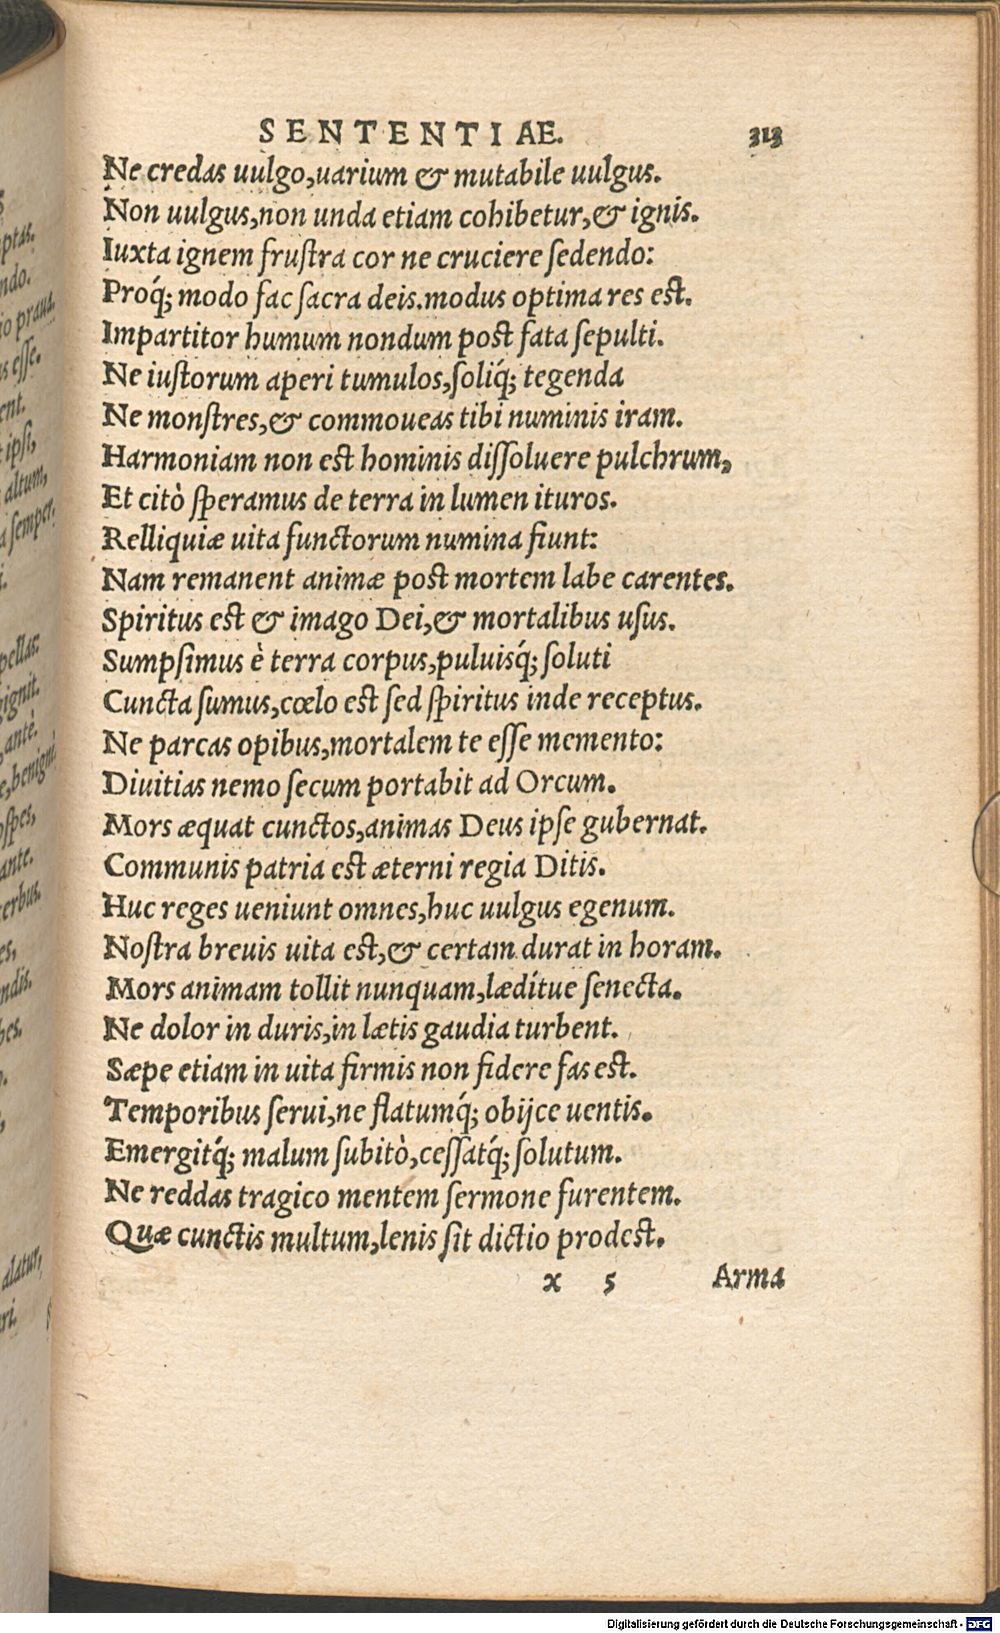 SENTENTIAE. 313
Ne credas uulgo,uarium & mutabile uulgus.
Non uulgus,non unda etiam cohibetur,& ignis.
Iuxta ignem frustra cor ne cruciere sedendo:
Proq́; modo fac sacra deis.modus optima res est.
Impartitor humum nondum post fata sepulti.
Ne iustorum aperi tumulos,soliq́; tegenda
Ne monstres,& commoueas tibi numinis iram.
Harmoniam non est hominis dissoluere pulchrum,
Et citò speramus de terra in lumen ituros.
Relliquiæ uita functorum numina fiunt:
Nam remanent animæ post mortem labe carentes.
Spiritus est & imago Dei,& mortalibus usus.
Sumpsimus è terra corpus,puluisq́; soluti
Cuncta sumus,cœlo est sed spiritus inde receptus.
Ne parcas opibus,mortalem te esse memento:
Diuitias nemo secum portabit ad Orcum.
Mors æquat cunctos,animas Deus ipse gubernat.
Communis patria est æterni regia Ditis.
Huc reges ueniunt omnes,huc uulgus egenum.
Nostra breuis uita est,& certam durat in horam.
Mors animam tollit nunquam,lædítue senecta.
Ne dolor in duris,in lætis gaudia turbent.
Sæpe etiam in uita firmis non fidere fas est.
Temporibus serui,ne flatumq́; obijce uentis.
Emergitq́; malum subitò,cessatq́; solutum.
Ne reddas tragico mentem sermone furentem.
Quæ cunctis multum,lenis sit dictio prodest.
x 5 Arma
ptas.
ndo.
io praua.
us esse.
ent.
ipsi,
altum,
a semper,
i.
pellas:
gignit.
antè.
e,benignè
ospes,
ante.
cerbus.
es,
ndis.
bes.
alatur,
ri.
Digitalisierung gefördert durch die Deutsche Forschungsgemeinschaft - DFG